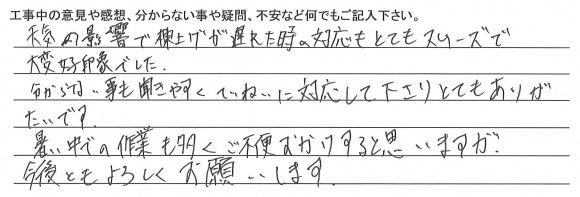 工事中の意見や感想、分からない事や疑問、不安など何でもご記入下さい。
天気の影響で棟上げが遅れた時の対応もとてもスムーズで
大変好印象でした。
分からない事も聞きやすくていねいに対応して下さりとてもありが
たいです。
暑い中での作業も多くご不便おかけすると思いますが、
今後ともよろしくお願いします。